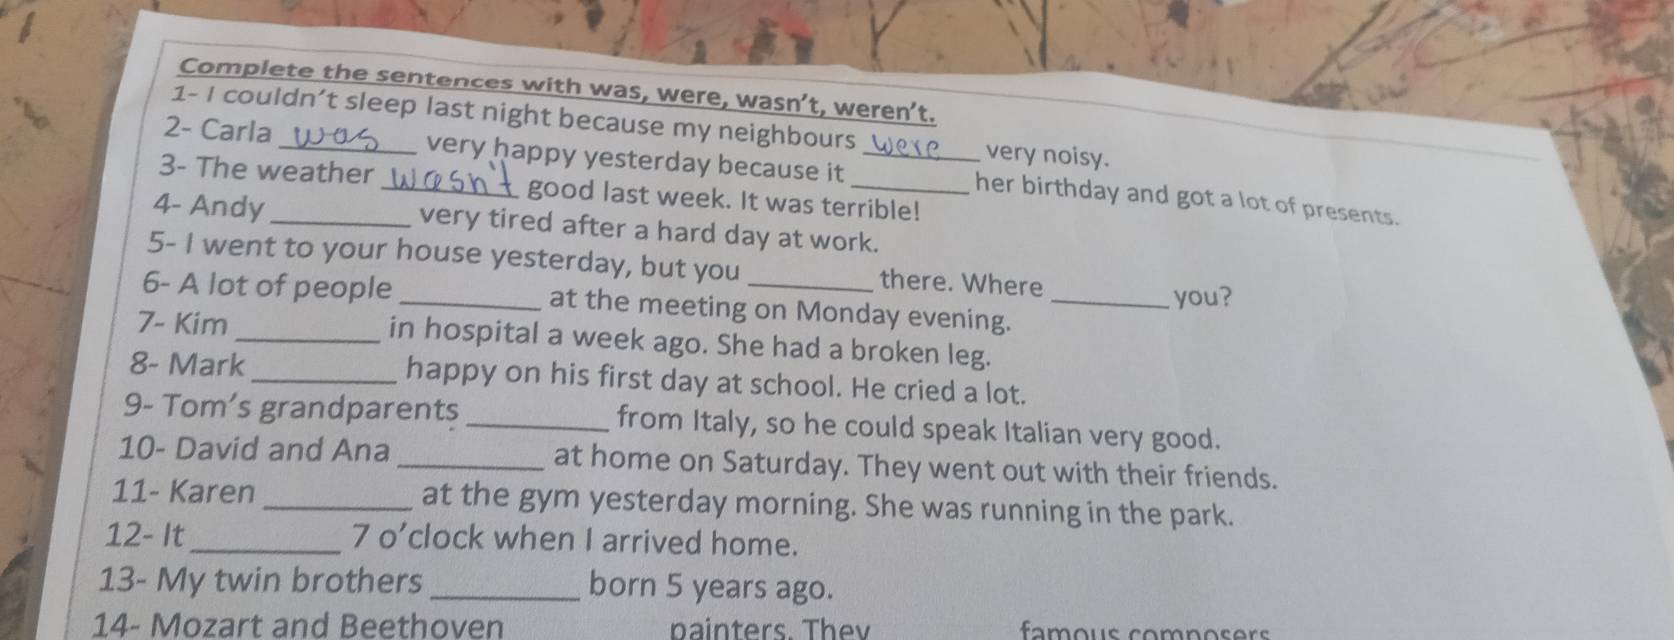 Complete the sentences with was, were, wasn't, weren't.
1- I couldn't sleep last night because my neighbours were very noisy.
2- Carla was very happy yesterday because it ________ her birthday and got a lot of presents.
3- The weather wasn't good last week. It was terrible!
4- Andy ________ very tired after a hard day at work.
5- I went to your house yesterday, but you ________ there. Where ________ you?
6- A lot of people ________ at the meeting on Monday evening.
7- Kim ________ in hospital a week ago. She had a broken leg.
8- Mark ________ happy on his first day at school. He cried a lot.
9- Tom's grandparents ________ from Italy, so he could speak Italian very good.
10- David and Ana ________ at home on Saturday. They went out with their friends.
11- Karen ________ at the gym yesterday morning. She was running in the park.
12- It ________ 7 o'clock when I arrived home.
13- My twin brothers ________ born 5 years ago.
14- Mozart and Beethoven painters. They famous composers